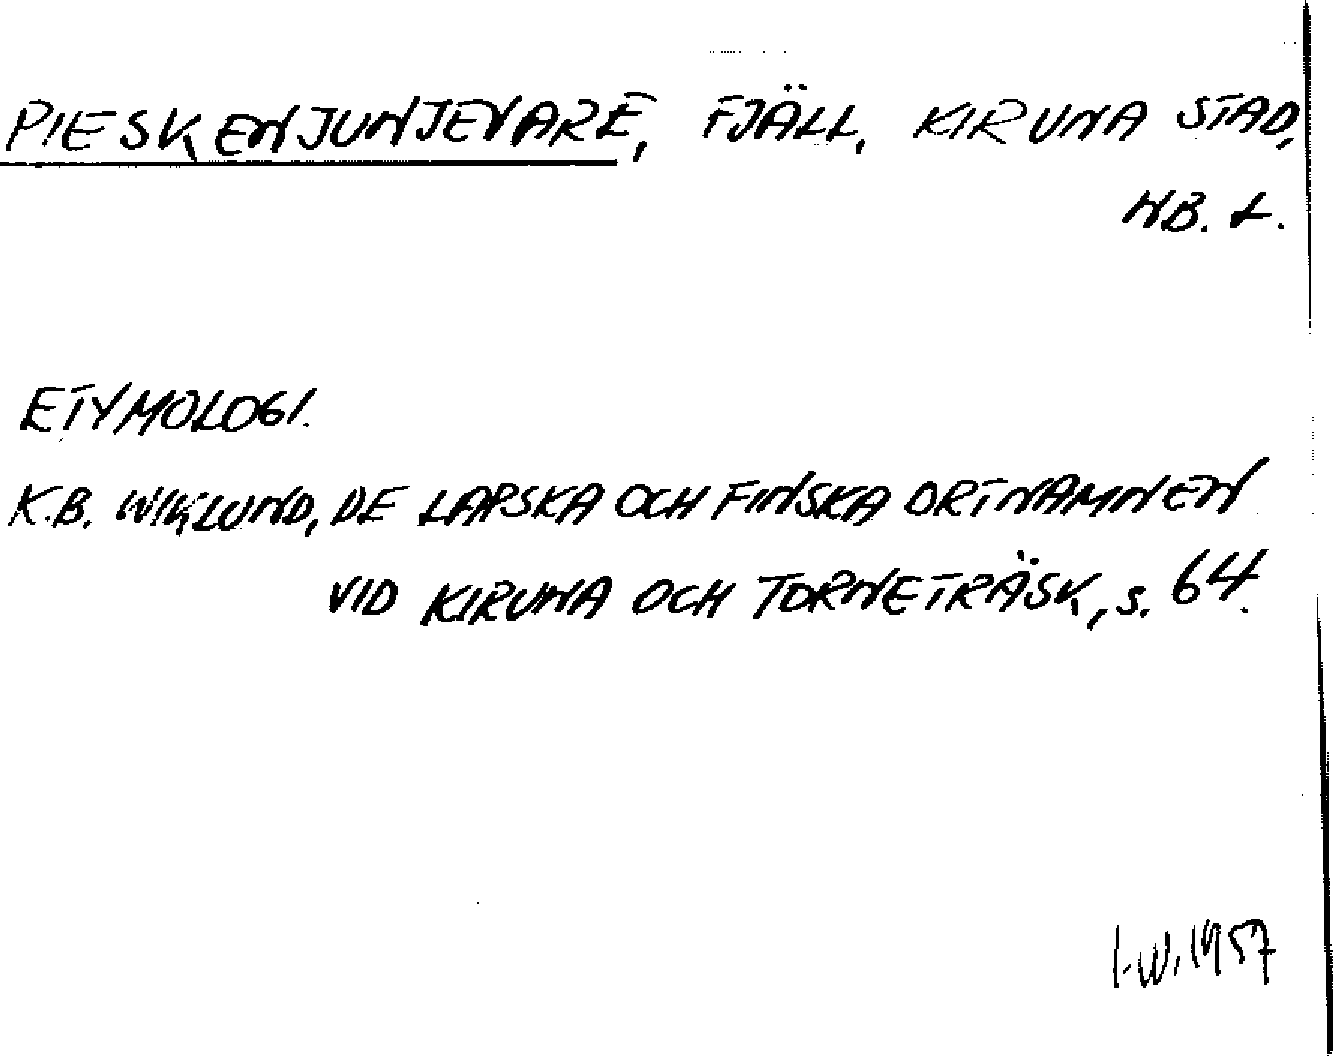 PIESKENJUNJEVARE, FJÄLL, KIRUNA STAD,
NB. L.
ETYMOLOGI.
K.B. WIKLUND, DE LAPSKA OCH FINSKA ORTNAMNEN
VID KIRUNA OCH TORNETRÄSK, s. 64.
I.W. 1957